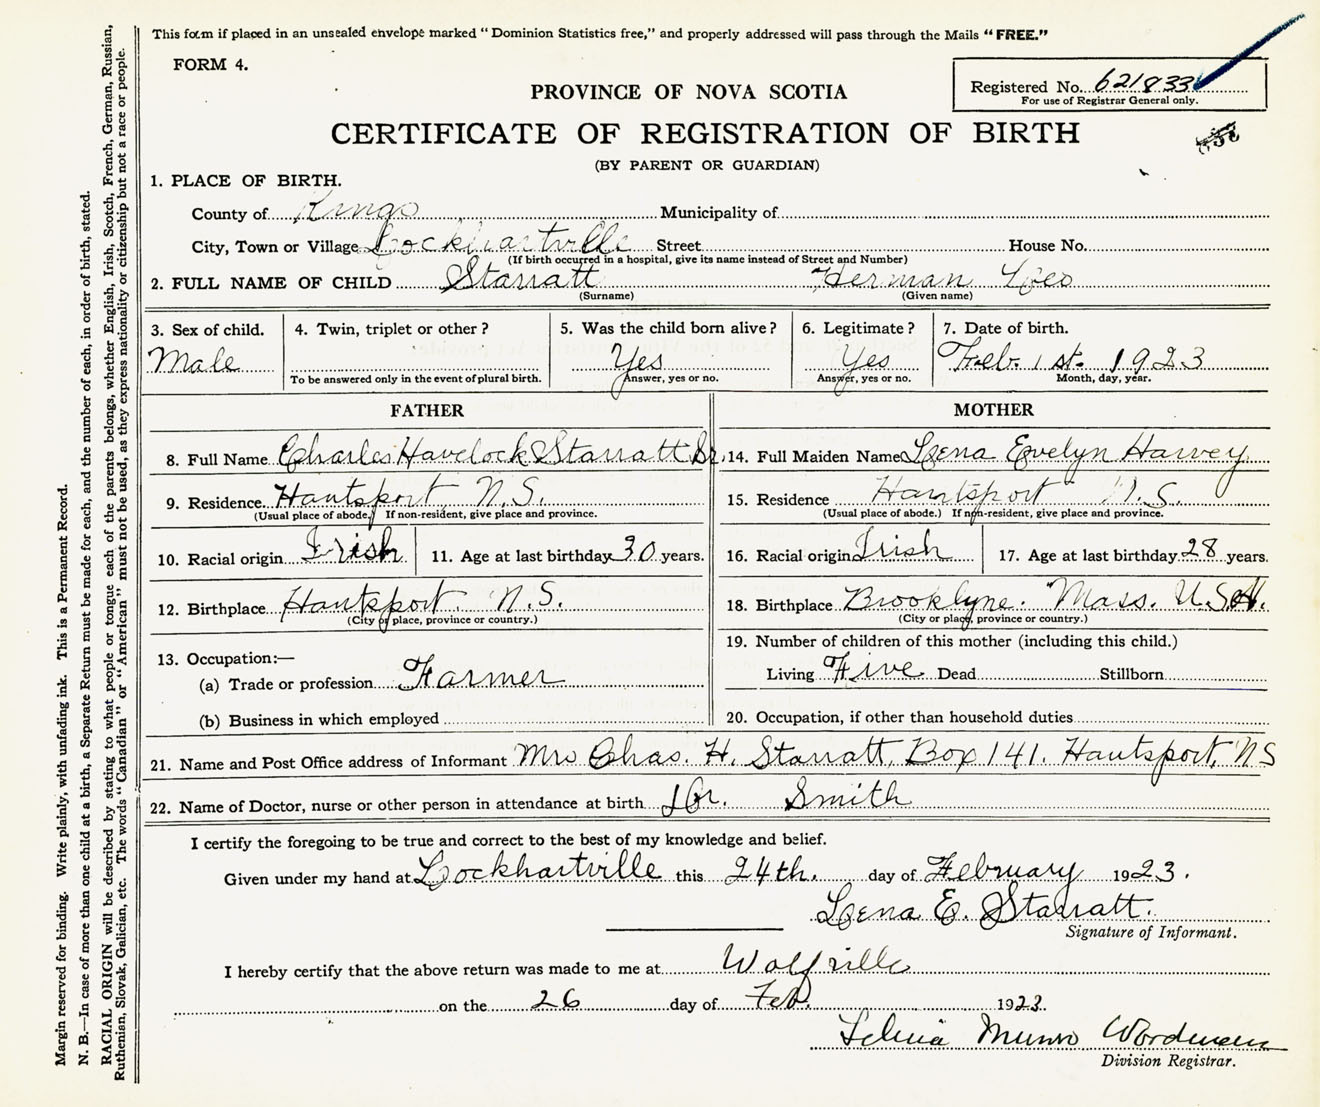 This form if placed in an unsealed envelope marked “Dominion Statistics free,” and properly addressed will pass through the Mails “FREE.”
FORM 4.
Registered No. 621833
For use of Registrar General only.
PROVINCE OF NOVA SCOTIA
CERTIFICATE OF REGISTRATION OF BIRTH
(BY PARENT OR GUARDIAN)
1. PLACE OF BIRTH.
County of Kings Municipality of
City, Town or Village Lockhartville Street House No.
(If birth occurred in a hospital, give its name instead of Street and Number)
2. FULL NAME OF CHILD Starratt Herman Leo
(Surname) (Given name)
3. Sex of child. 4. Twin, triplet or other? 5. Was the child born alive? 6. Legitimate? 7. Date of birth.
Male Yes Yes Feb. 1st. 1923
To be answered only in the event of plural birth. Answer, yes or no. Answer, yes or no. Month, day, year.
FATHER
8. Full Name Charles Havelock Starratt Sr.
9. Residence Hantsport N.S.
(Usual place of abode.) If non-resident, give place and province.
10. Racial origin Irish 11. Age at last birthday 30 years.
12. Birthplace Hantsport. N.S.
(City or place, province or country.)
13. Occupation:—
(a) Trade or profession Farmer
(b) Business in which employed
MOTHER
14. Full Maiden Name Lena Evelyn Harvey
15. Residence Hantsport N.S.
(Usual place of abode.) If non-resident, give place and province.
16. Racial origin Irish 17. Age at last birthday 28 years.
18. Birthplace Brooklyne. Mass. U.S.A.
(City or place, province or country.)
19. Number of children of this mother (including this child.)
Living Five Dead Stillborn
20. Occupation, if other than household duties
21. Name and Post Office address of Informant Mrs Chas. H. Starratt, Box 141. Hantsport, NS
22. Name of Doctor, nurse or other person in attendance at birth Dr. Smith
I certify the foregoing to be true and correct to the best of my knowledge and belief.
Given under my hand at Lockhartville this 24th. day of February 1923.
Lena E. Starratt.
Signature of Informant.
I hereby certify that the above return was made to me at Wolfville
on the 26 day of Feb. 1923.
Munro
Division Registrar.
Margin reserved for binding. Write plainly, with unfading ink. This is a Permanent Record.
N. B.—In case of more than one child at a birth, a Separate Return must be made for each, and the number of each, in order of birth, stated.
RACIAL ORIGIN will be described by stating to what people or tongue each of the parents belongs, whether English, Irish, Scotch, French, German, Russian,
Ruthenian, Slovak, Galician, etc. The words “Canadian” or “American” must not be used, as they express nationality or citizenship but not a race or people.